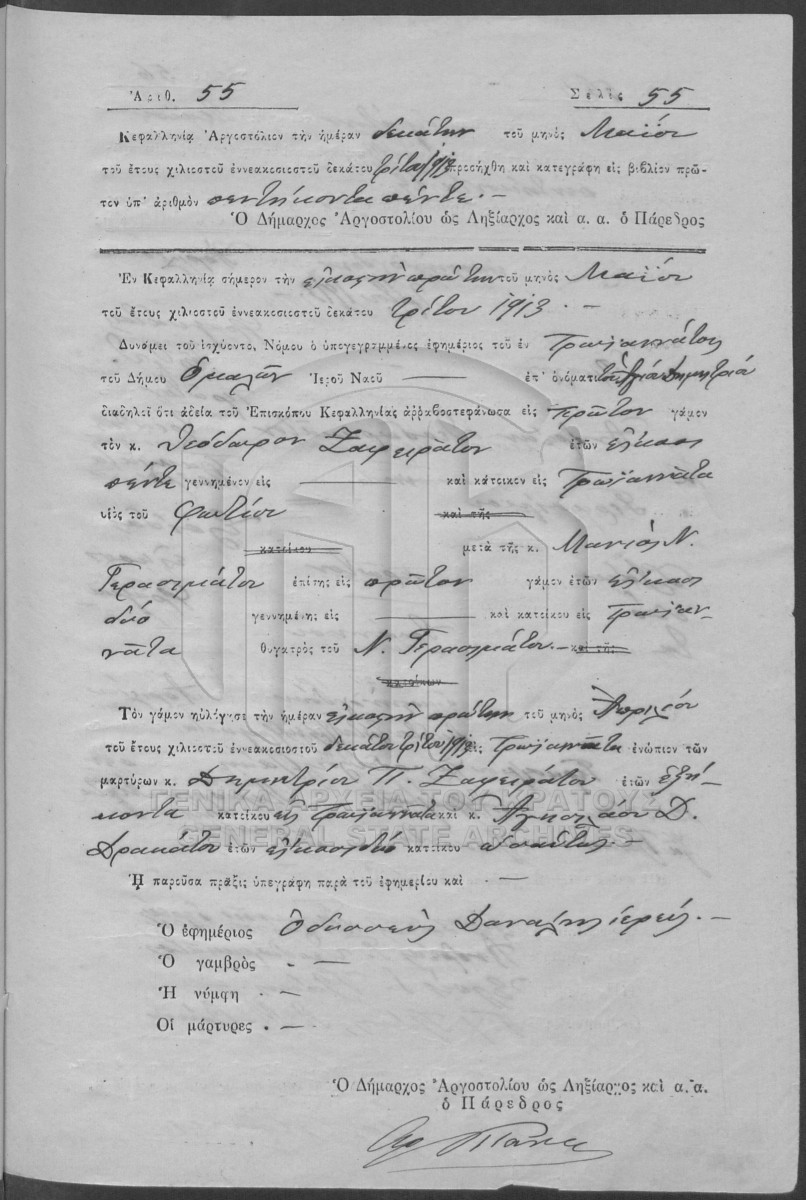 Ἀριθ. 55 Σελὶς 55
Κεφαλληνία Ἀργοστόλιον τὴν ἡμέραν δεκάτην τοῦ μηνὸς Μαΐου
τοῦ ἔτους χιλιοστοῦ ἐννεακοσιοστοῦ δεκάτου τρίτου 1913 προσήχθη καὶ κατεγράφη εἰς βιβλίον πρῶ-
τον ὑπ' ἀριθμὸν πεντήκοντα πέντε. —
Ὁ Δήμαρχος Ἀργοστολίου ὡς Ληξίαρχος καὶ α. α. ὁ Πάρεδρος
Ἐν Κεφαλληνίᾳ σήμερον τὴν εἰκοστὴν πρώτην τοῦ μηνὸς Μαΐου
τοῦ ἔτους χιλιοστοῦ ἐννεακοσιοστοῦ δεκάτου τρίτου 1913. —
Δυνάμει τοῦ ἰσχύοντο, Νόμου ὁ ὑπογεγραμμένος ἐφημέριος τοῦ ἐν Τρωϊαννάτοις
τοῦ Δήμου Ὁμαλῶν Ἱεροῦ Ναοῦ — ἐπ' ὀνόματι τοῦ Ἁγίου Δημητρίου
διαδηλοῖ ὅτι ἀδείᾳ τοῦ Ἐπισκόπου Κεφαλληνίας ἀρραβοστεφάνωσα εἰς πρῶτον γάμον
τὸν κ. Θεόδωρον Ζαφειράτον ἐτῶν εἴκοσι
πέντε γεννημένον εἰς — καὶ κάτοικον εἰς Τρωϊαννάτα
υἱὸς τοῦ Φωτίου καὶ τῆς
κατοίκου μετὰ τῆς κ. Μαρίας Ν.
Γερασιμάτου ἐπίσης εἰς πρῶτον γάμον ἐτῶν εἴκοσι
δύο γεννημένης εἰς — καὶ κατοίκου εἰς Τρωϊαν-
νάτα θυγατρὸς τοῦ Ν. Γερασιμάτου. — καὶ τῆς
κατοίκων
Τὸν γάμον ηὐλόγησε τὴν ἡμέραν εἰκοστὴν πρώτην τοῦ μηνὸς Ἀπριλίου
τοῦ ἔτους χιλιοστοῦ ἐννεακοσιοστοῦ δεκάτου τρίτου 1913 εἰς Τρωϊαννάτα ἐνώπιον τῶν
μαρτύρων κ. Δημητρίου Π. Ζαφειράτου ἐτῶν ἑξή-
κοντα κατοίκου εἰς Τρωϊαννάτα καὶ κ. Ἀγησιλάου Δ.
Δρακάτου ἐτῶν εἴκοσι δύο κατοίκου ὡσαύτως. —
ΓΕΝΙΚΑ ΑΡΧΕΙΑ ΤΟΥ ΚΡΑΤΟΥΣ
GENERAL STATE ARCHIVES
Ἡ παροῦσα πρᾶξις ὑπεγράφη παρὰ τοῦ ἐφημερίου καὶ —
Ὁ ἐφημέριος Ὀδυσσεὺς ἱερεύς. —
Ὁ γαμβρὸς . —
Ἡ νύμφη . —
Οἱ μάρτυρες . —
Ὁ Δήμαρχος Ἀργοστολίου ὡς Ληξίαρχος καὶ α. α.
ὁ Πάρεδρος